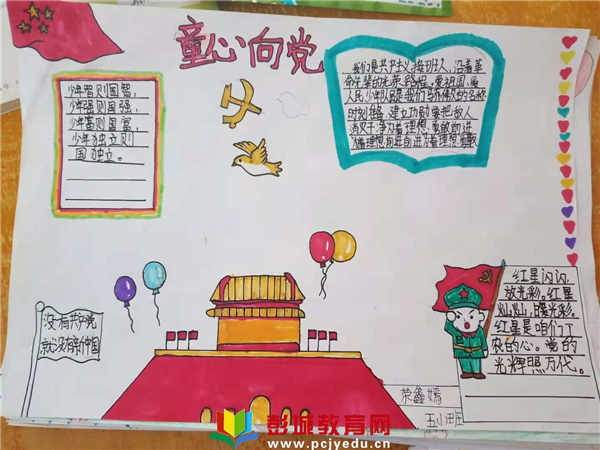 童心向党
少年智则国智，
少年强则国强，
少年富则国富，
少年独立则
国独立。
我们是共产主义接班人，沿着革
命先辈的光荣路程，爱祖国，爱
人民，少年队员是我们的名称
时刻准备，建立功勋要把敌人
为着理想，勇敢前进
为着理想前进前进为着理想勇敢
没有共产党
就没有新中国
红星闪闪
放光彩。红星
灿灿，暖
红星是咱们工
农的心。党的
光辉照万代。
荣鑫嫣
彭城教育网
www.pcjyedu.cn